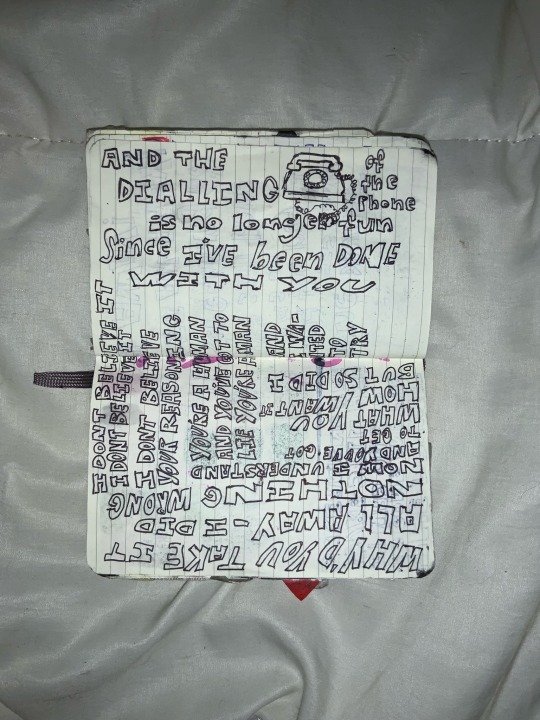 AND THE
DIALLING
of
the
Phone
is no longer fun
Since I'VE been DONE
WITH YOU
I DONT BELIEVE IT
I DONT BELIEVE IT
I DONT BELIEVE
YOUR REASONING
YOU'RE A HUMAN
AND YOU'VE GOT TO
LIE YOU'RE A MAN
AND
TO
TRY
WHY'D YOU TAKE IT
ALL AWAY - I DID
NOTHING WRONG
AND NOW I UNDERSTAND
AND YOU'VE GOT
TO GET
WHAT YOU WANT
HOW
BUT SO DID I